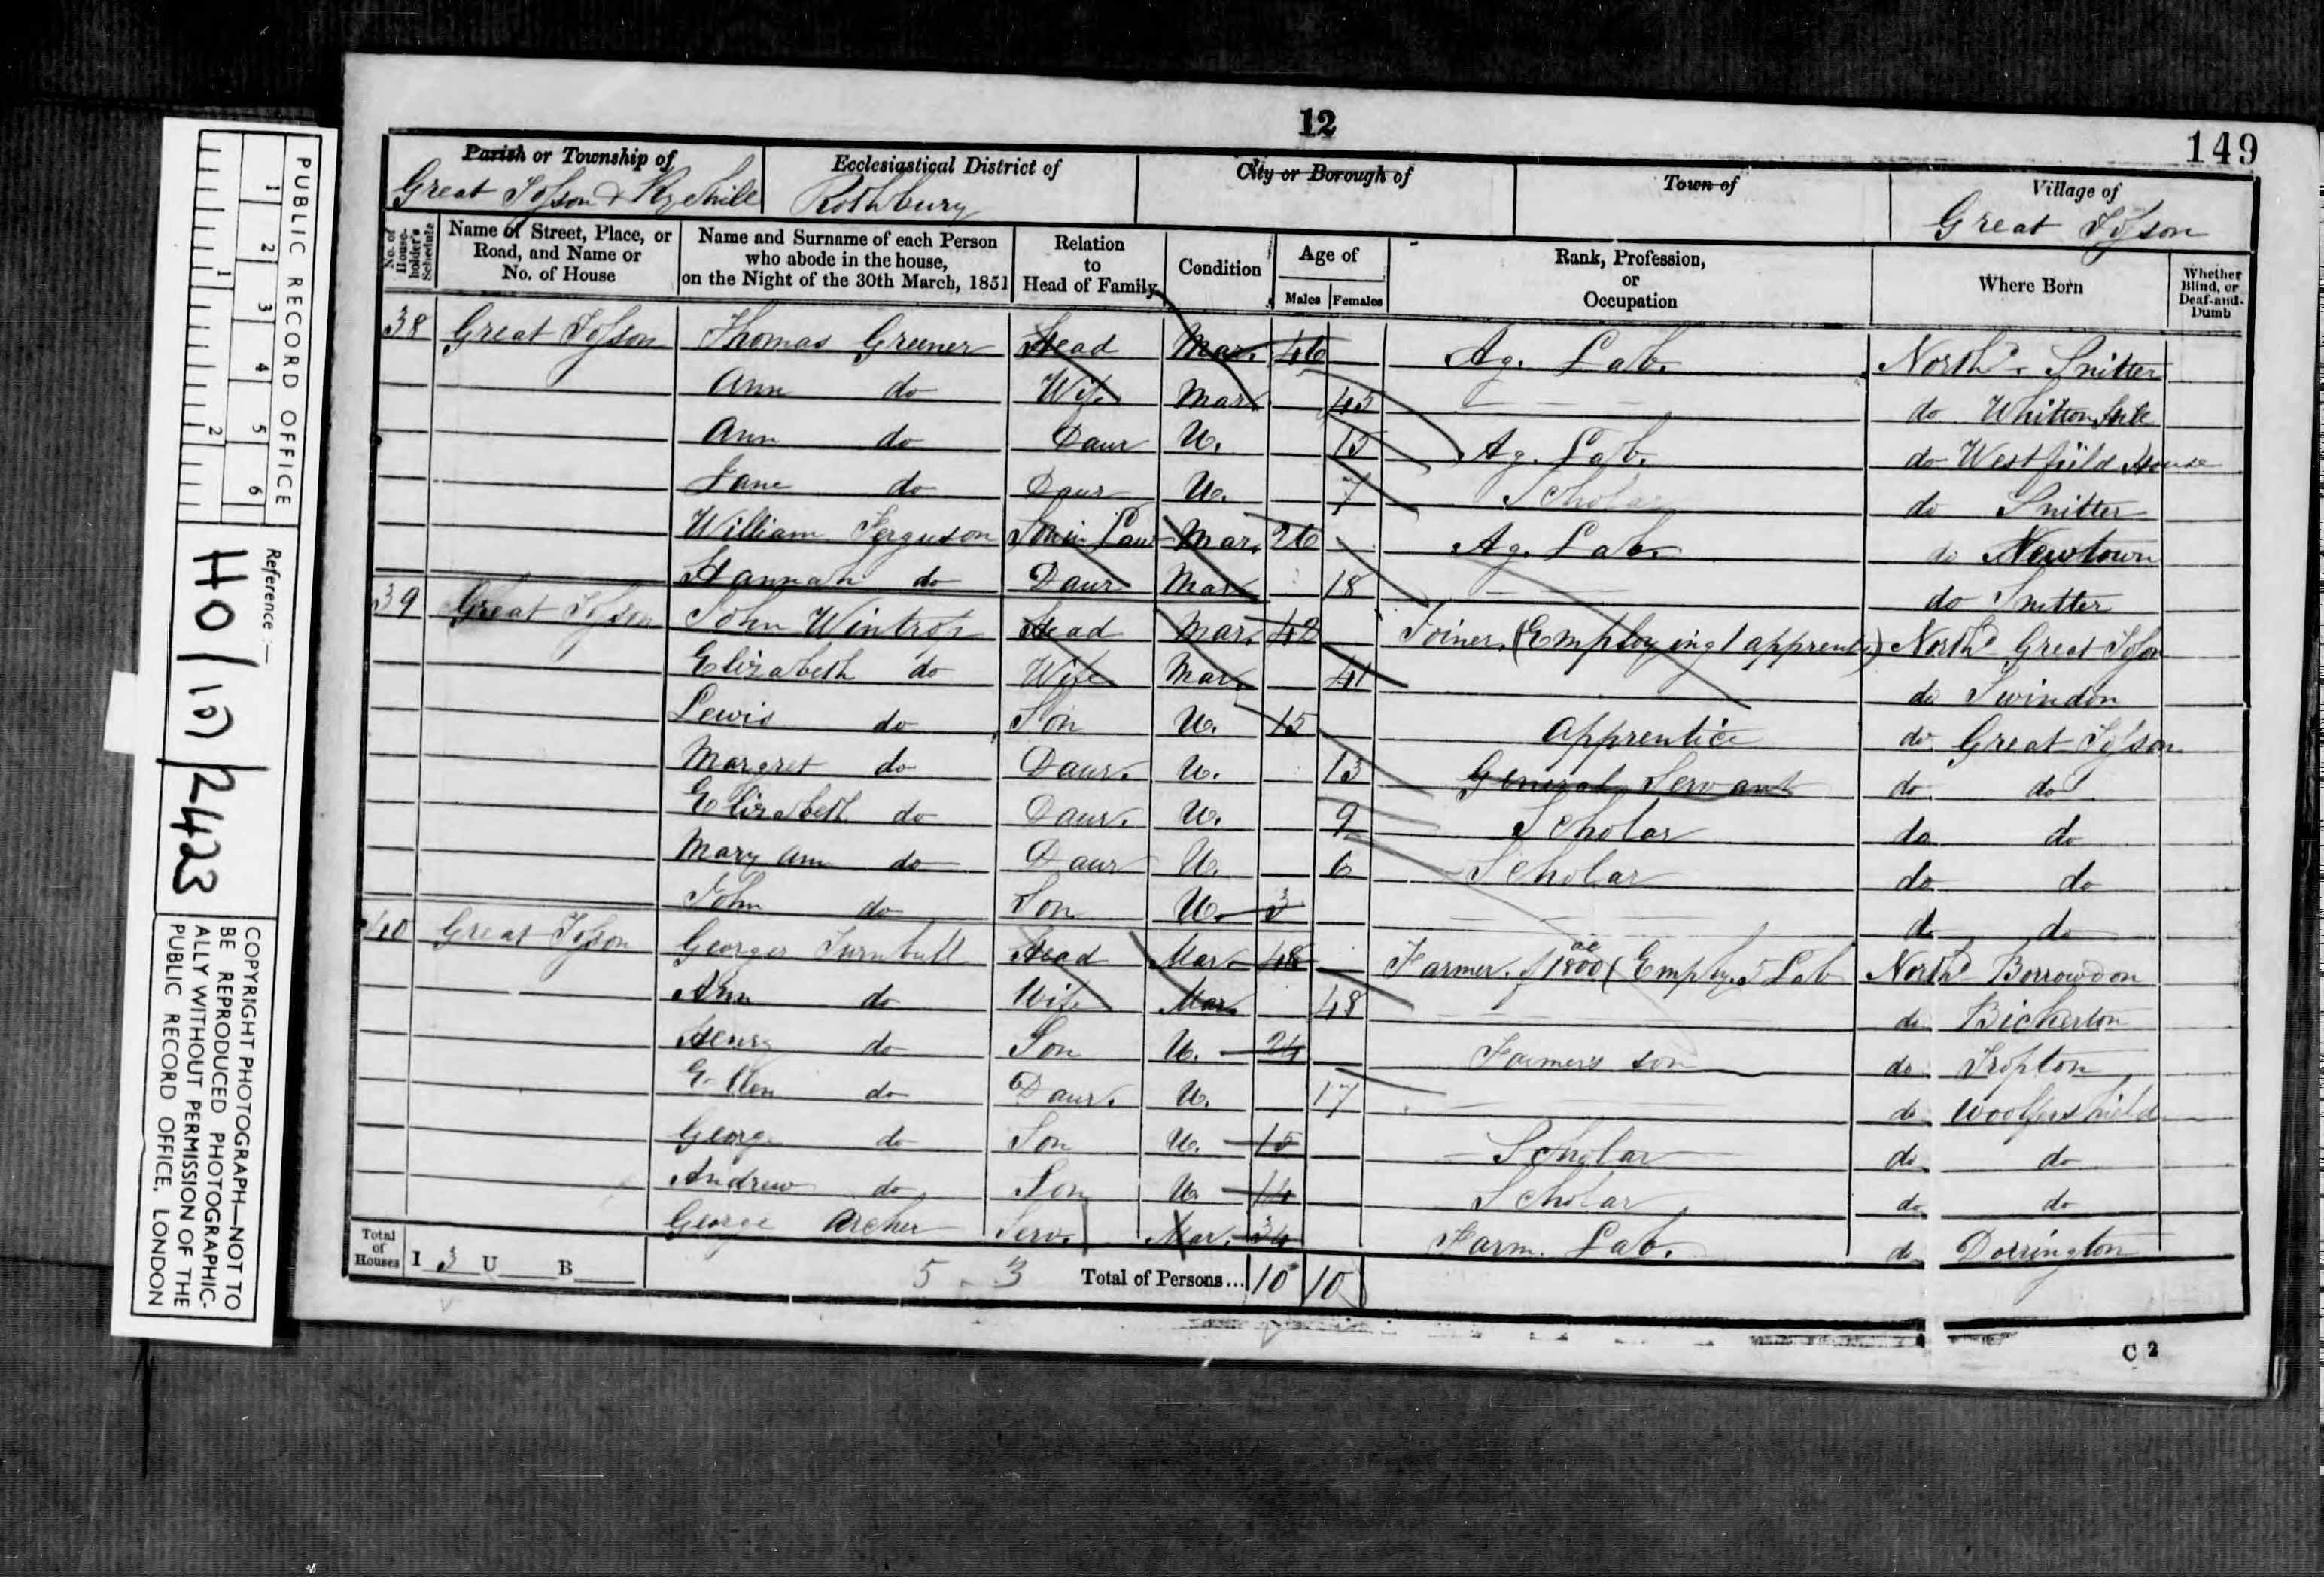 12
149
Parish or Township of
Great Tosson & Ryehill
Ecclesiastical District of
Rothbury
City or Borough of
Town of
Village of
Great Tosson
No. of Householder's Schedule
Name of Street, Place, or Road, and Name or No. of House
Name and Surname of each Person who abode in the house, on the Night of the 30th March, 1851
Relation to Head of Family
Condition
Age of
Males Females
Rank, Profession, or Occupation
Where Born
Whether Blind, or Deaf-and-Dumb
38 Great Tosson Thomas Greener Head Mar. 46 Ag. Lab. Northd. Snitter
Ann do Wife Mar 45 do Whitton
Ann do Daur U. 15 Ag. Lab. do Westfield House
Jane do Daur U. 7 Scholar do Snitter
William Ferguson Son in Law Mar. 26 Ag. Lab. do Newtown
Hannah do Daur Mar 18 do Snitter
39 Great Tosson John Wintrop Head Mar. 42 Joiner. (Employing 1 apprentice) Northd Great Tosson
Elizabeth do Wife Mar. 41 do Swindon
Lewis do Son U. 15 Apprentice do Great Tosson
Margret do Daur. U. 13 General Servant do do
Elizabeth do Daur. U. 9 Scholar do do
Mary Ann do Daur U. 6 Scholar do do
John do Son U. 3 do do
40 Great Tosson George Turnbull Head Mar 48 Farmer of 1800 ac (Employ. 5 Lab Northd Borrowdon
Ann do Wife Mar 48 do Bickerton
Henry do Son U. 24 Farmers son do Tropton
Ellen do Daur. U. 17 do
George do Son U. 15 Scholar do do
Andrew do Son U 14 Scholar do do
George Archer Serv. Mar. 34 Farm. Lab. do Dorrington
Total of Houses I 3 U B
5 - 3 Total of Persons... 10 10
C 2
PUBLIC RECORD OFFICE
1 2 3 4 5 6
1 2
Reference:-
HO/107/2423
COPYRIGHT PHOTOGRAPH—NOT TO
BE REPRODUCED PHOTOGRAPHIC-
ALLY WITHOUT PERMISSION OF THE
PUBLIC RECORD OFFICE, LONDON